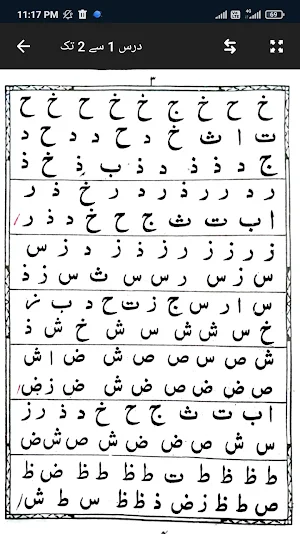 11:17 PM 69
درس 1 سے 2 تک
٣
خ ح خ ج خ خ ح خ ح
ت ا ث خ د ح د د ح د
ج د ذ ذ د ذ ب ذ خ ذ
ر د ر ر ذ ر د ر خ ذ ر
ا ب ت ث ج ح خ د ذ ر
ز ر ز ز ر ز ذ ز د ز س
س ز س ر س س ث س ز ذ
س ا ر س ج ز ت ح د ب ز
خ س ش ش س ش خ ش ذ
ش ص س ص ص ش ض ا ش
ص ض ض ص ض ش ض ز ض
ا ب ت ث ج ح خ د ذ ر ز
س ش ص ض ش ض ص ش ض
ط ظ ظ ط ت ط ظ ط ظ ض ظ
ص ط ظ ز ض ذ ظ ظ س ط ش